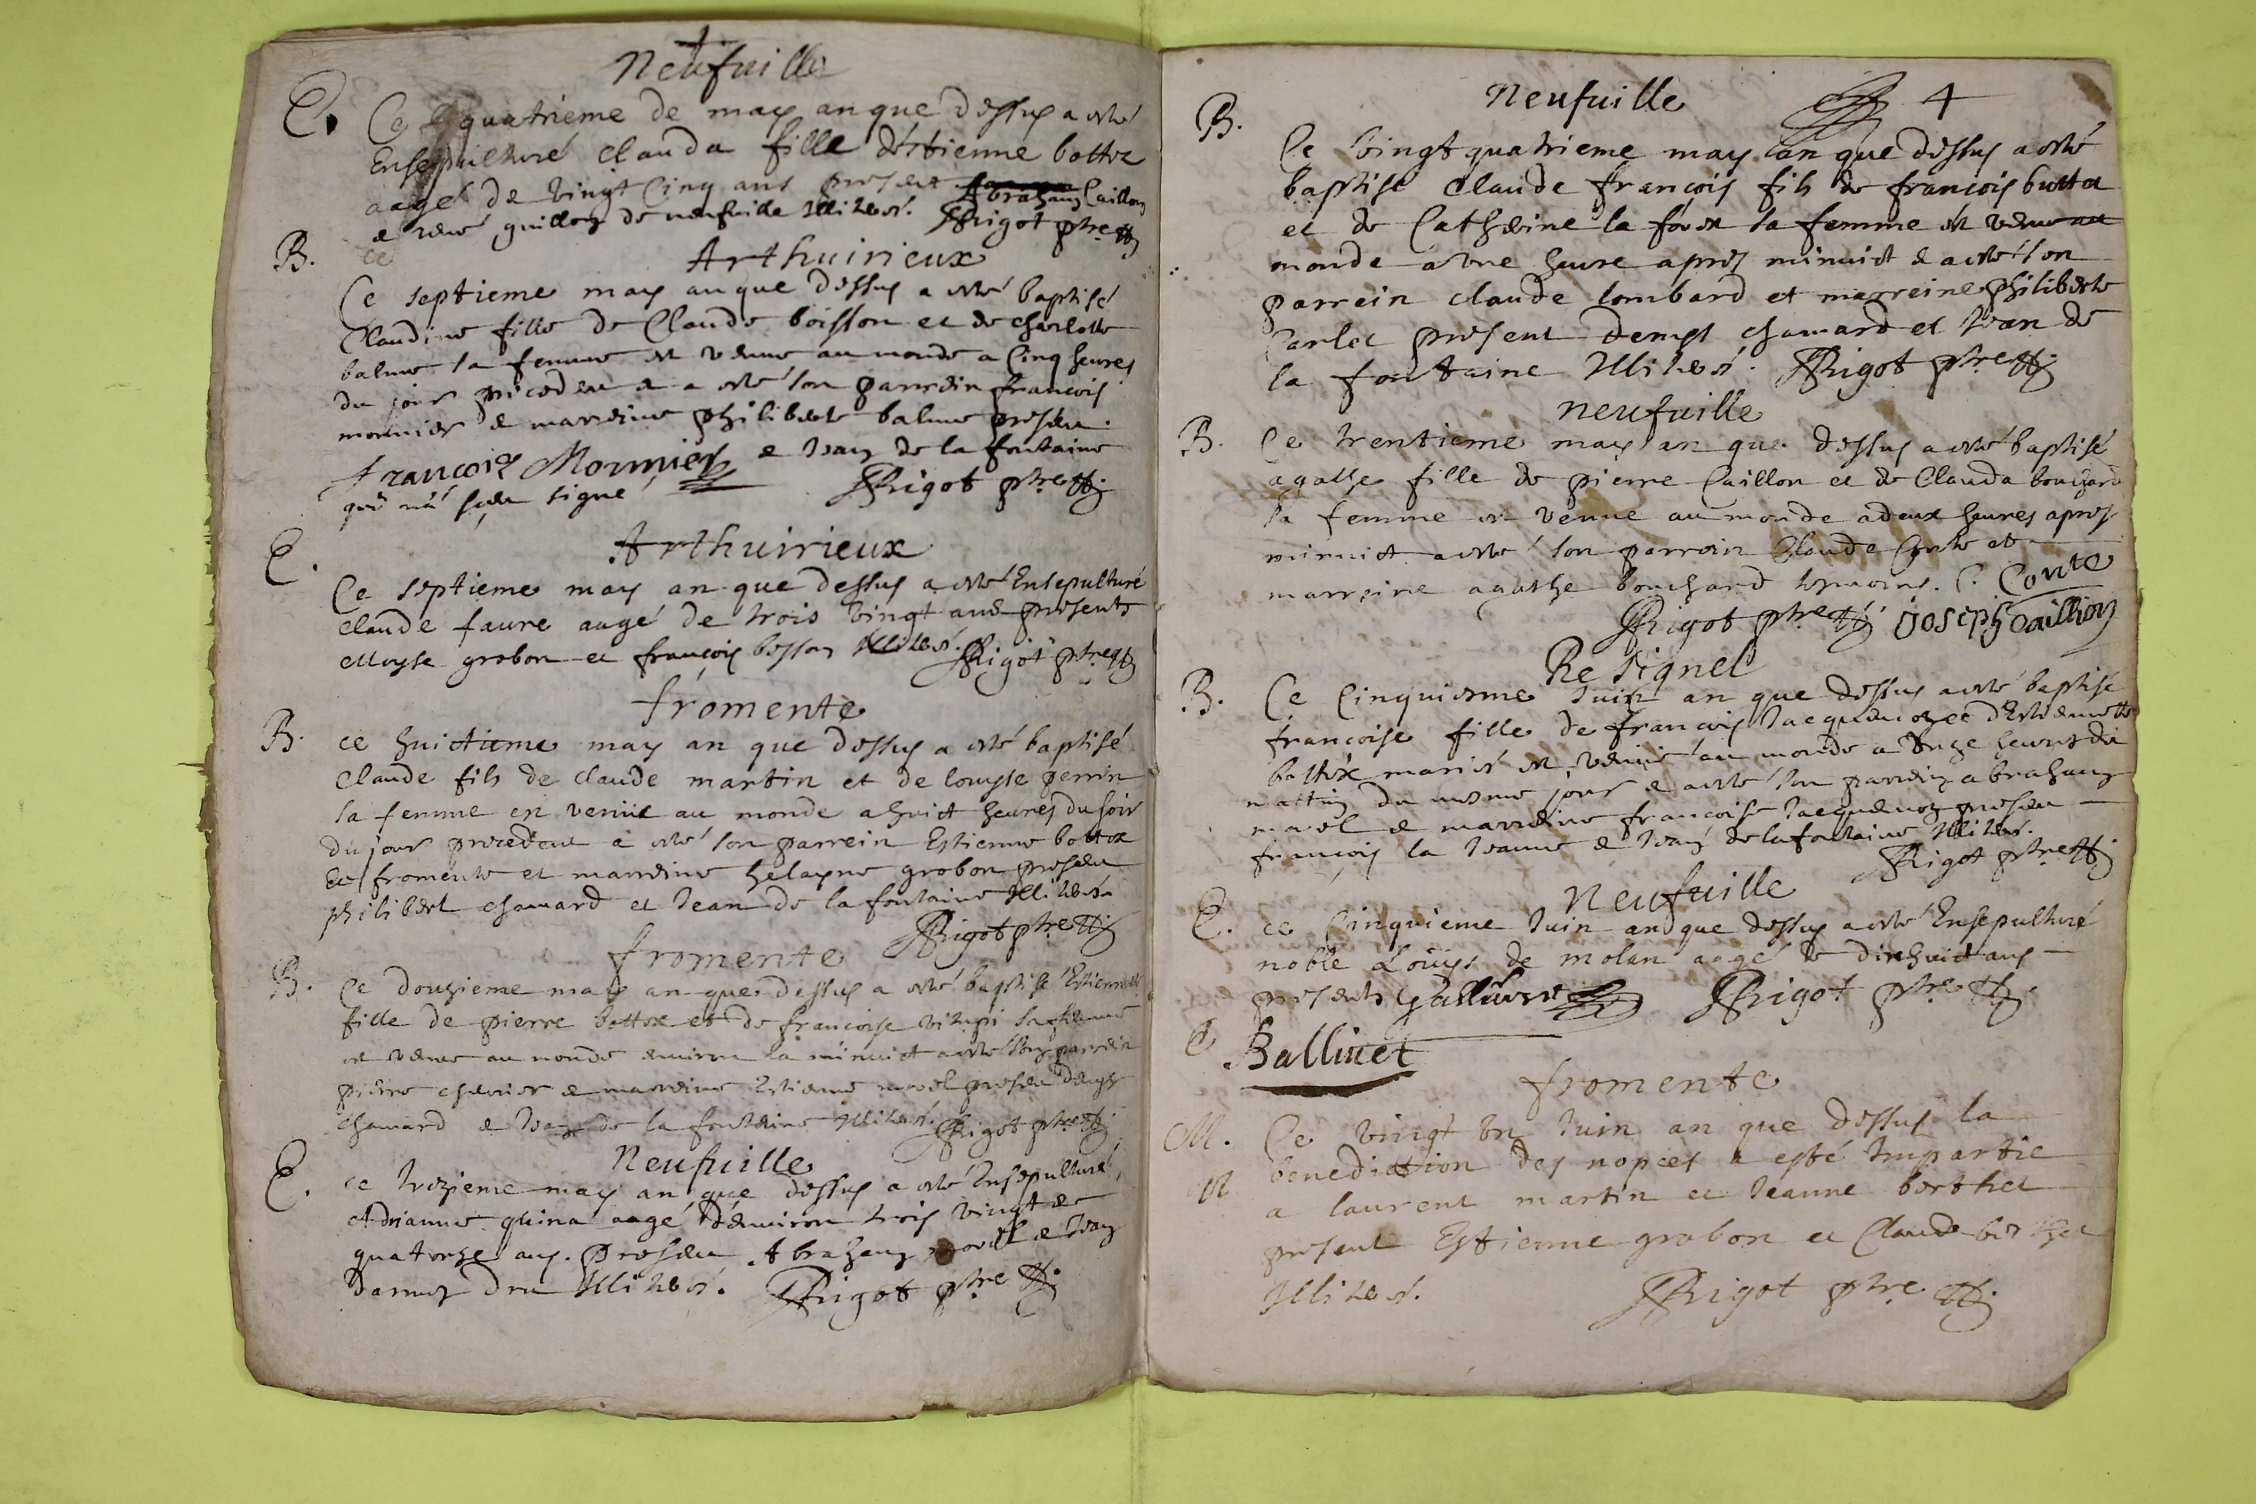 Neufuille
E. Ce quatrieme de may an que dessus a esté
Ensepulturé Clauda fille d'éstienne bottex
aagé de vingt Cinq ans present Abraham Caillon
e rené guillon de neufuille Illiterés. Rigot ptre
ce
B. Arthuirieux
Ce septieme may an que dessus a esté baptisé
Claudine fille de Claude boisson et de charlotte
balme sa femme est venue au monde a Cinq heures
du jour précédent e a esté son parrein françois
monnier e marreine philiberte balme present
françois Monnier e Jean de la fontaine
qui n'a sceu signé Rigot ptre
E. Arthuirieux
Ce septieme may an que dessus a esté Ensepulturé
Claude faure aagé de trois vingt ans presents
Moyse grobon et françois besson Illiterés. Rigot ptre
fromente
B. ce huictieme may an que dessus a esté baptisé
Claude fils de Claude martin et de louyse perrin
sa femme est venue au monde a huict heures du soir
du jour precedent a esté son parrein Estienne bottex
de fromente et marreine helayne grobon present
philibert chamard et Jean de la fontaine Illiterés
Rigot ptre
fromente
B. Ce douzieme may an que dessus a esté baptisé Estiennette
fille de pierre bottex et de françoise sa femme
est venue au monde environ la minuict a esté son parrein
pierre chevrier e marreine Estienne morel present denys
chamard e Jean de la fontaine Illiterés. Rigot ptre
Neufuille
E. ce trezieme may an que dessus a esté Ensepulturé
Adrianne quina aagé d'environ trois vingt e
quatorze ans. present Abraham morel e Jean
dru Illiterés. Rigot ptre
Neufuille 4
B. Ce vingt quatrieme may an que dessus a esté
baptisé Claude françois fils de françois bottex
et de Catherine la forest sa femme est venu au
monde a une heure apres minuict e a esté son
parrein Claude lombard et marreine philiberte
Carlet present denys chamard et Jean de
la fontaine Illiterés. Rigot ptre
neufuille
B. Ce trentieme may an que dessus a esté baptisé
agathe fille de pierre Caillon et de Clauda bouchard
sa femme est venue au monde a deux heures apres
minuict a esté son parrein Claude Conte et
marreine agathe bouchard tesmoins. C. Conte
Rigot ptre Joseph Caillion
Resignel
B. Ce Cinquiesme Juin an que dessus a esté baptisé
françoise fille de françois Jacquenon et d'Estiennette
bottex mariés est venue au monde a unze heures du
mattin du mesme jour e a esté son parrein abraham
morel e marreine françoise Jacquenon present
françois la Jeanne e Jean de la fontaine Illiterés.
Rigot ptre
Neufuille
E. ce Cinquieme Juin an que dessus a esté Ensepulturé
noble Louys de molan aagé de dixhuict ans
presents Rigot ptre
E Ballinet
fromente
M. Ce vingt un Juin an que dessus la
N benediction des nopces a esté Impartie
a laurent martin et Jeanne berthet
present Estienne grobon et Claude berthet
Illiterés. Rigot ptre